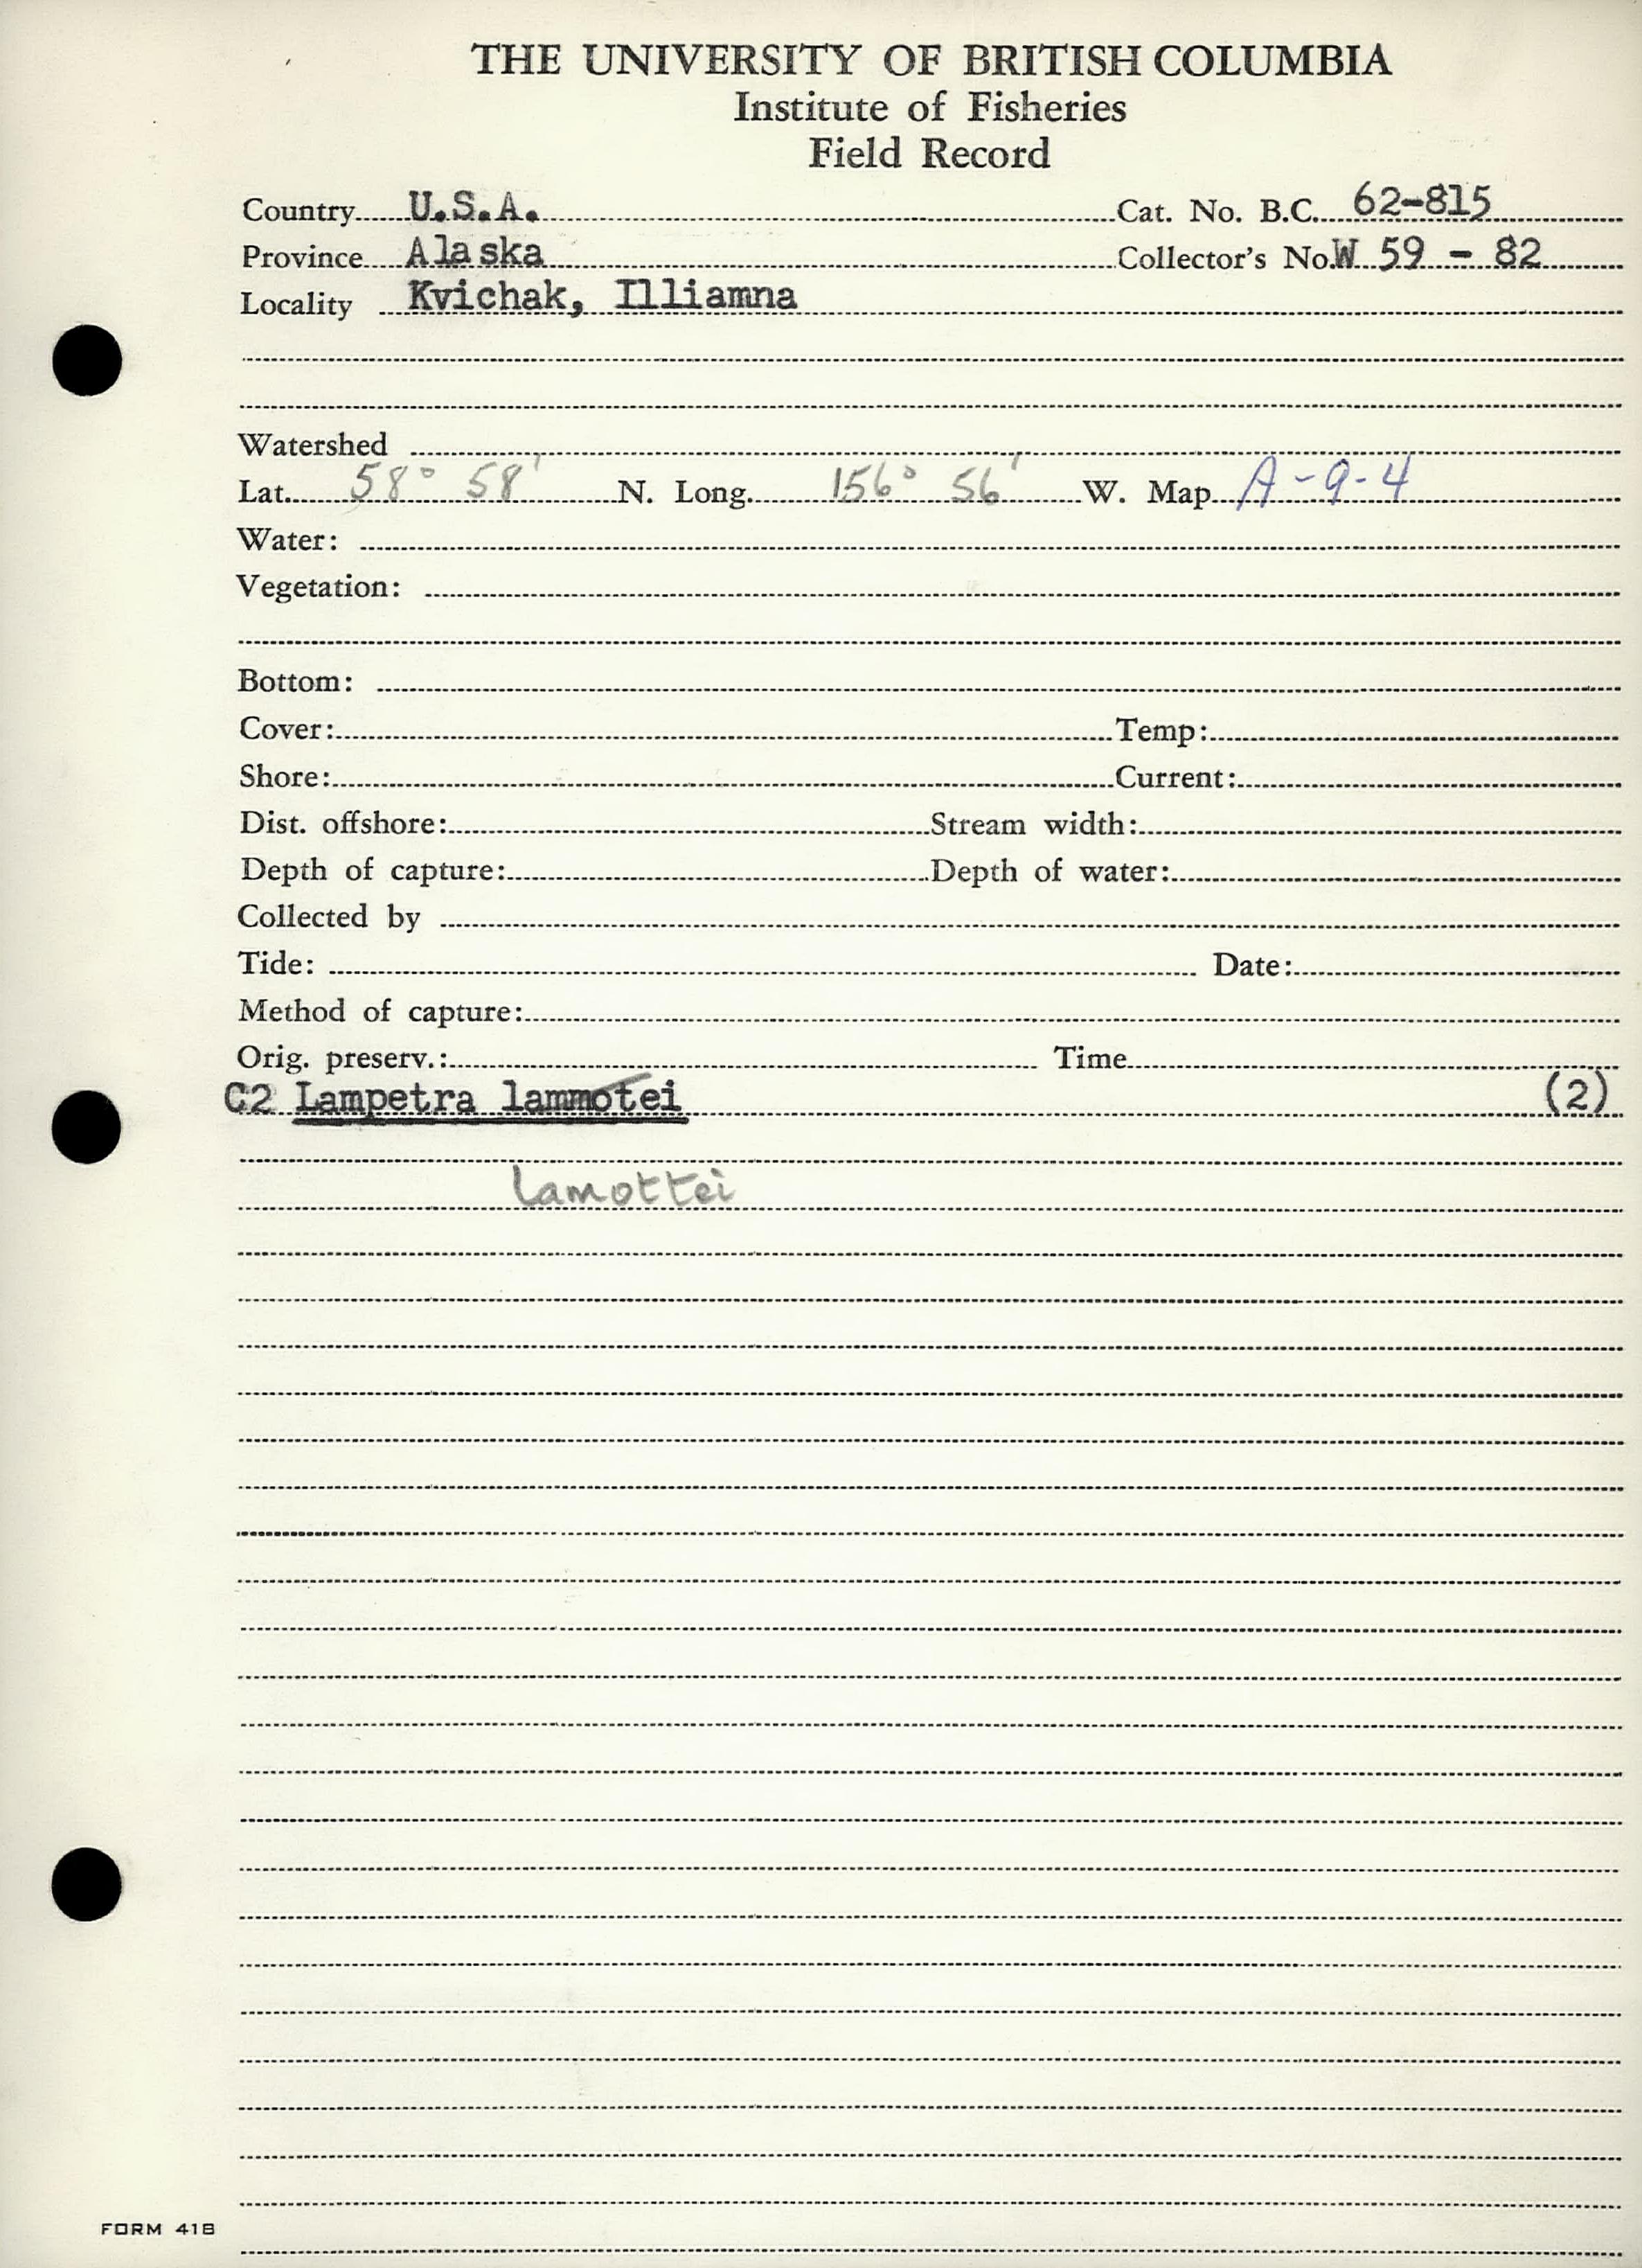 THE UNIVERSITY OF BRITISH COLUMBIA
Institute of Fisheries
Field Record
Country U.S.A. Cat. No. B.C. 62-815
Province Alaska Collector's No. W 59 - 82
Locality Kvichak, Illiamna
Watershed
Lat. 58° 58' N. Long. 156° 56' W. Map A-9-4
Water:
Vegetation:
Bottom:
Cover: Temp:
Shore: Current:
Dist. offshore: Stream width:
Depth of capture: Depth of water:
Collected by
Tide: Date:
Method of capture:
Orig. preserv.: Time
C2 Lampetra lammotei (2)
lamottei
FORM 41B